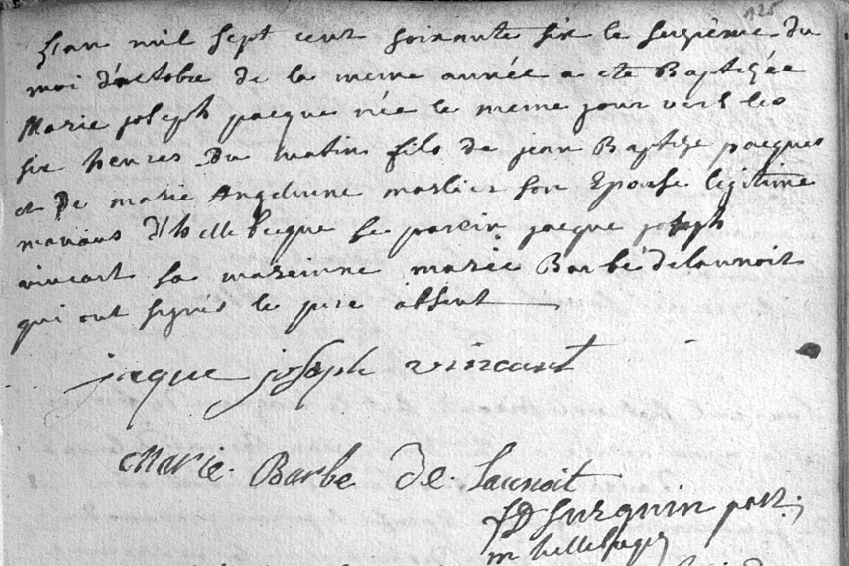 125
L'an mil sept cent soixante six le seizième du
moi d'octobre de la meme année a eté Baptizée
Marie joseph jacque née le meme jour vers les
six heures du matin fils de jean Baptize jacques
et De marie Angelinne marlier son Epouse legitime
manans d'hellebecque se parein jacque joseph
vincart sa mareinne marie Barbe delaunoit
qui ont signés le pere absent
jacque joseph vincant
Marie Barbe De Launoit
past:
in hellebeque